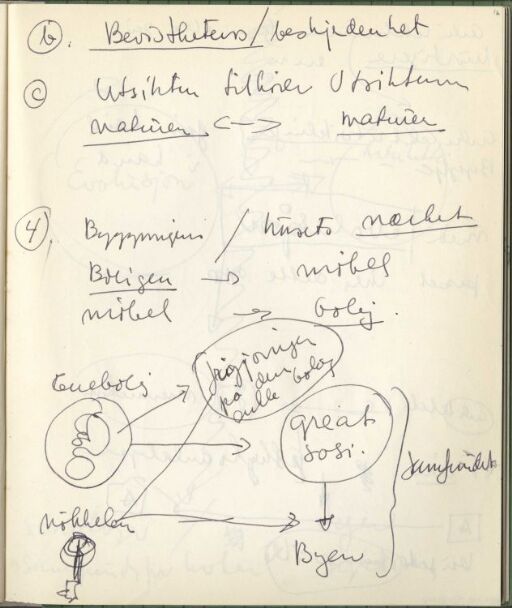 (b). Bevissthetens / beskjedenhet
(c) Utsikten tilhører Utsikten
naturen <-> naturen
(4). Bygningens / husets nærhet
Boligen -> møbel
møbel -> bolig.
Enebolig
på den
bolig
great
sosi.
nøkkelen
Byen